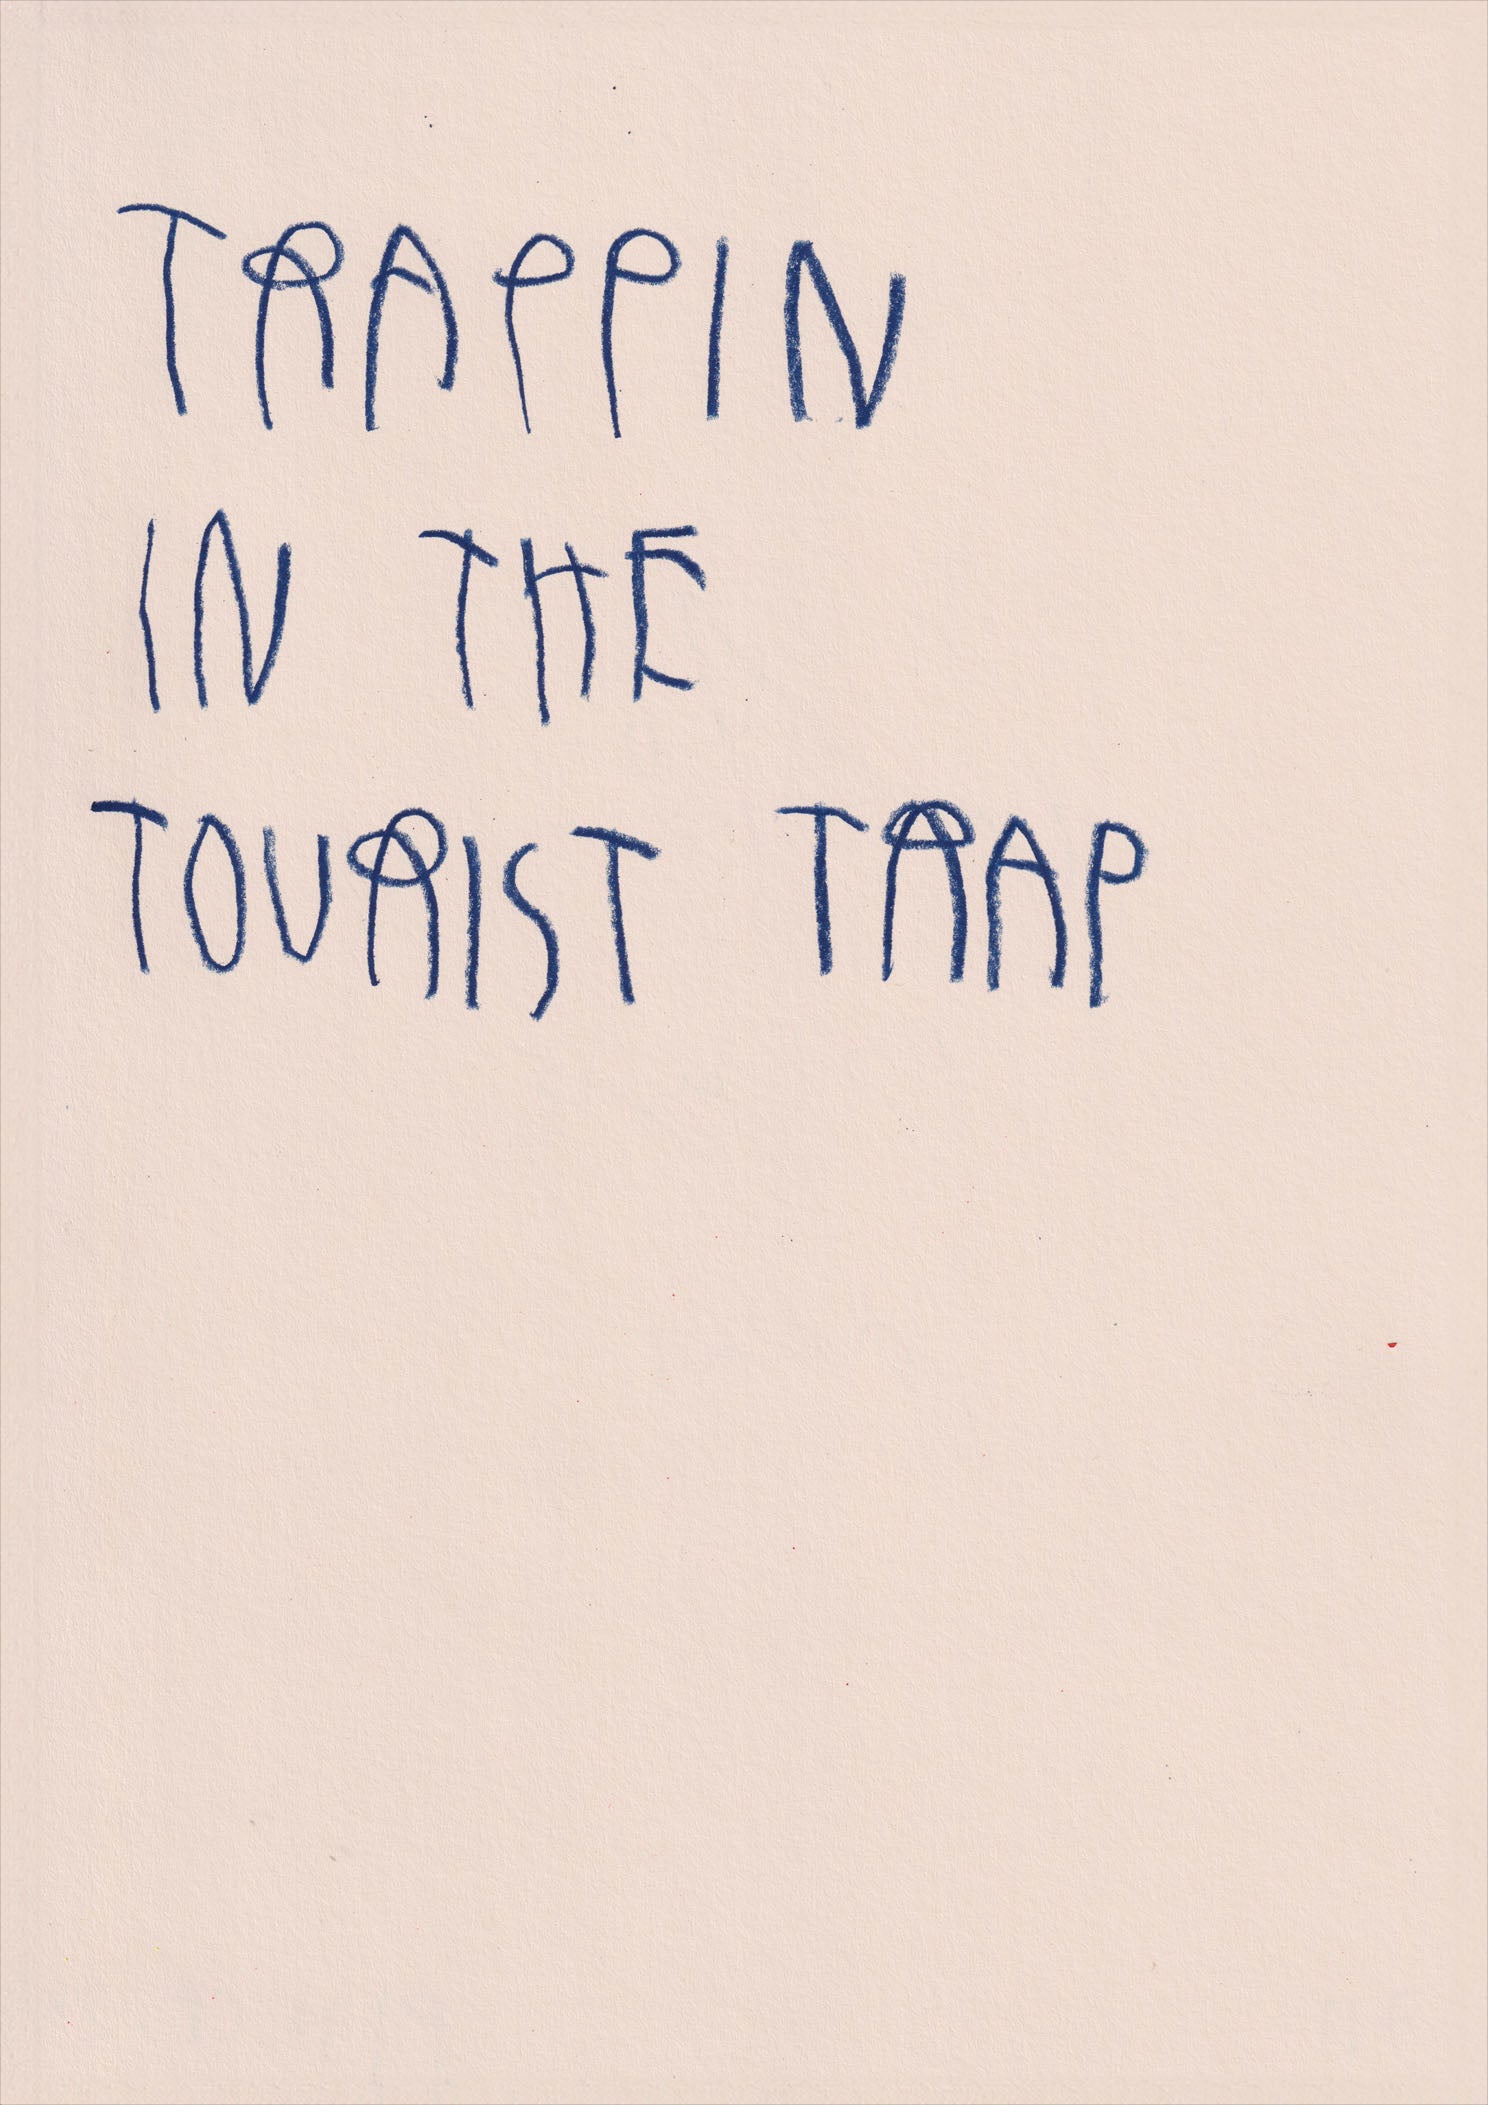 TRAPPIN
IN THE
TOURIST TRAP